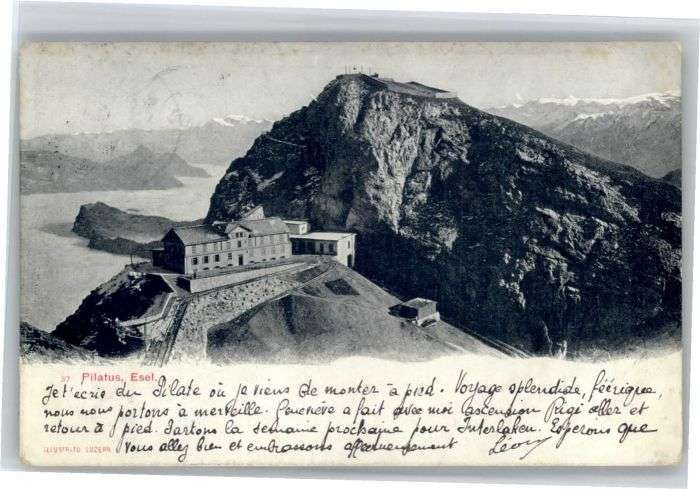 37 Pilatus, Esel.
Je t'écris du Pilate où je viens de monter à pied. Voyage splendide, féérique,
nous nous portons à merveille. Geneveve a fait avec moi l'ascension Rigi aller et
retour à pied. Partons la semaine prochaine pour Interlaken. Espérons que
Vous allez bien et embrassons affectueusement Léon
ILLUSTRATO LUZERN